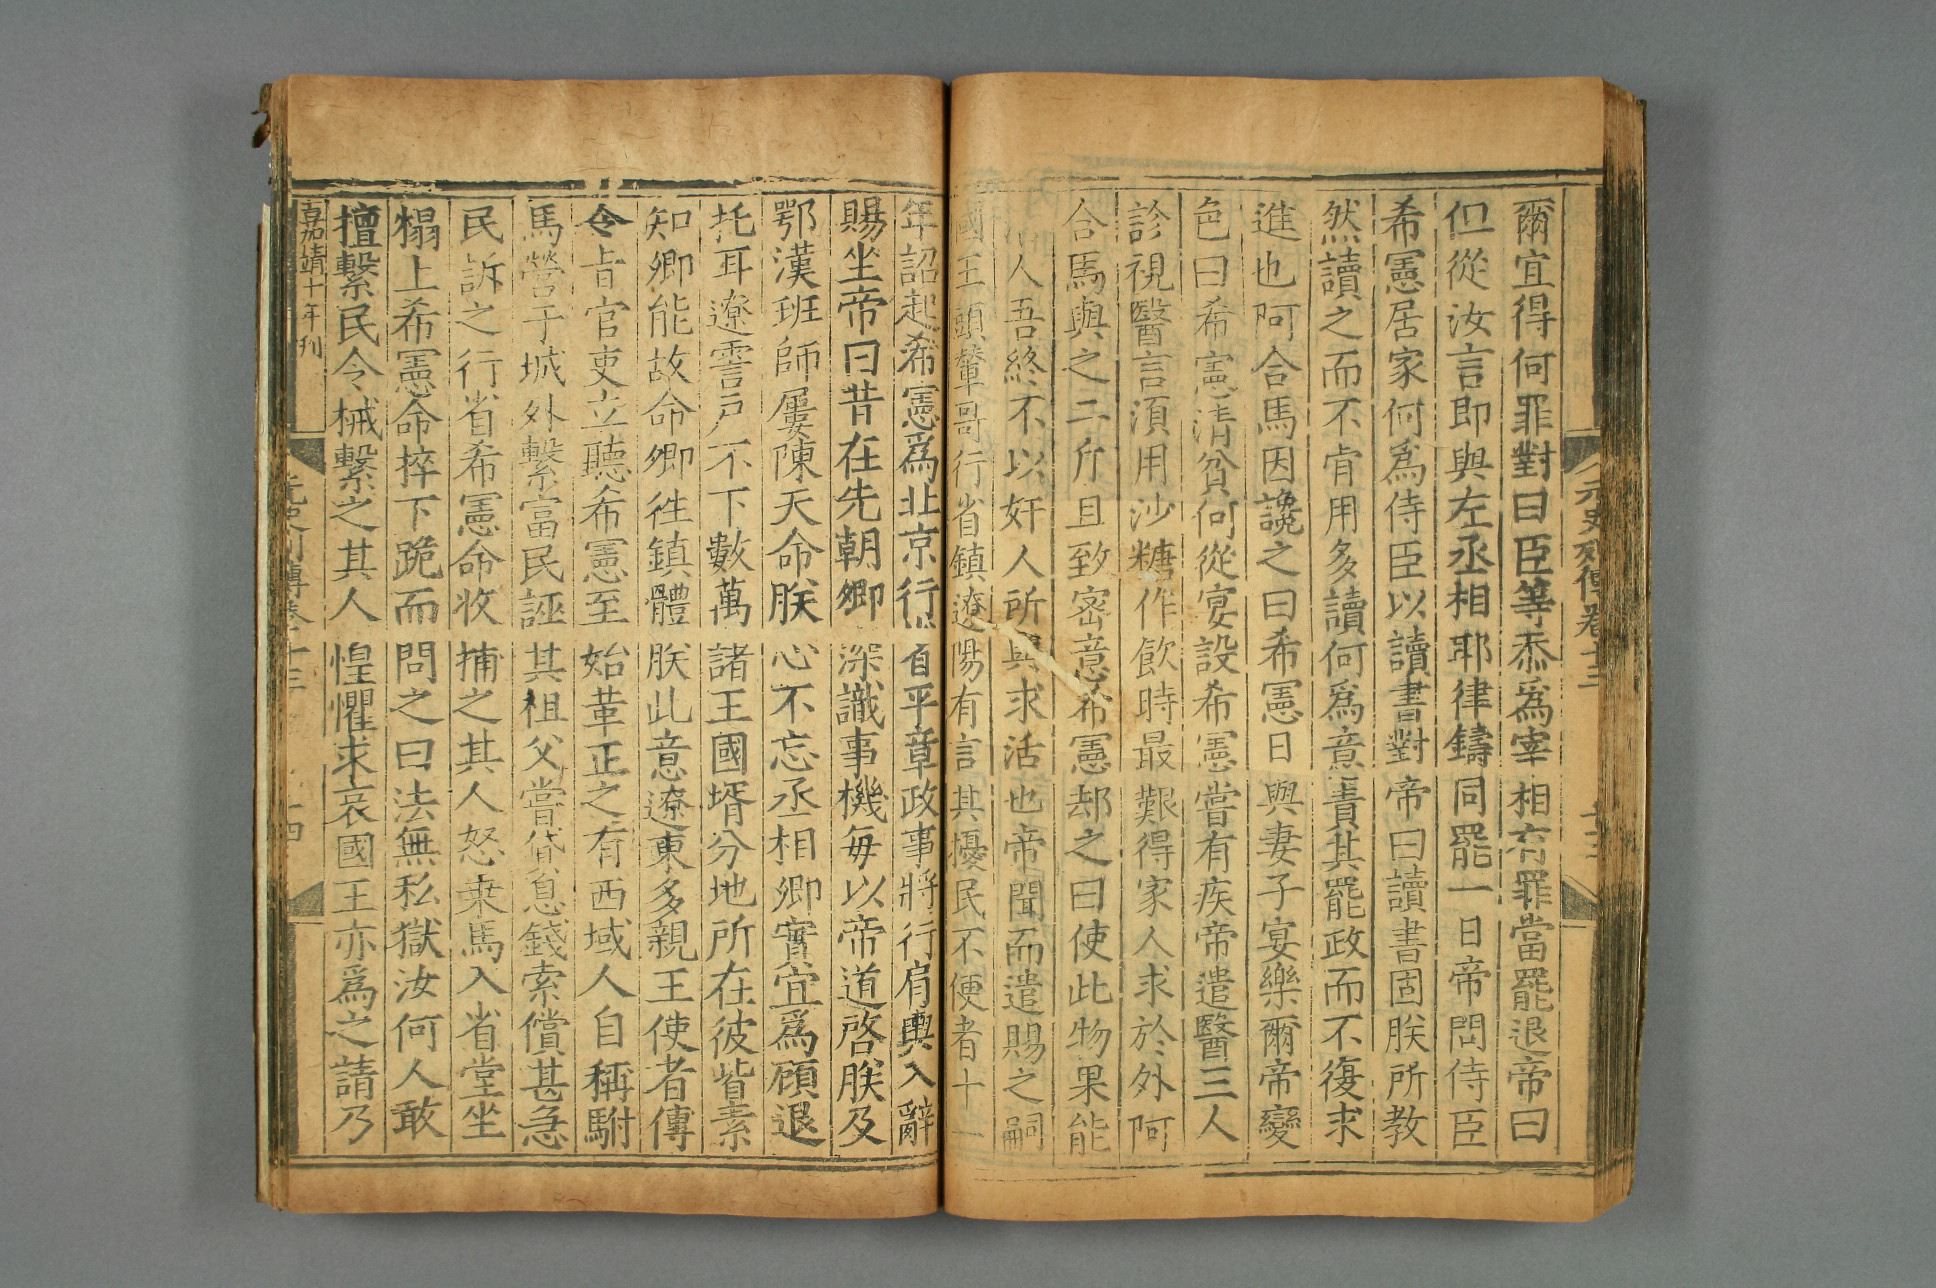 元史列傳卷十三
十三
爾宜得何罪對曰臣等忝爲宰相有罪當罷退帝曰
但從汝言即與左丞相耶律鑄同罷一日帝問侍臣
希憲居家何爲侍臣以讀書對帝曰讀書固朕所教
然讀之而不肯用多讀何爲意責其罷政而不復求
進也阿合馬因讒之曰希憲日與妻子宴樂爾帝變
色曰希憲清貧何從宴設希憲嘗有疾帝遣醫三人
診視醫言須用沙糖作飲時最艱得家人求於外阿
合馬與之二斤且致密意希憲却之曰使此物果能
人吾終不以奸人所與求活也帝聞而遣賜之嗣
國王頭輦哥行省鎮遼陽有言其擾民不便者十一
年詔起希憲爲北京行省平章政事將行肩輿入辭
賜坐帝曰昔在先朝卿深識事機每以帝道啓朕及
鄂漢班師屢陳天命朕心不忘丞相卿實宜爲顧退
托耳遼霫戶不下數萬諸王國壻分地所在彼皆素
知卿能故命卿徃鎮體朕此意遼東多親王使者傳
令旨官吏立聽希憲至始革正之有西域人自稱駙
馬營于城外繫富民誣其祖父嘗貸息錢索償甚急
民訴之行省希憲命收捕之其人怒乗馬入省堂坐
榻上希憲命捽下跪而問之曰法無私獄汝何人敢
擅繫民令械繫之其人惶懼求哀國王亦爲之請乃
嘉靖十年刊
元史列傳卷十三
十四